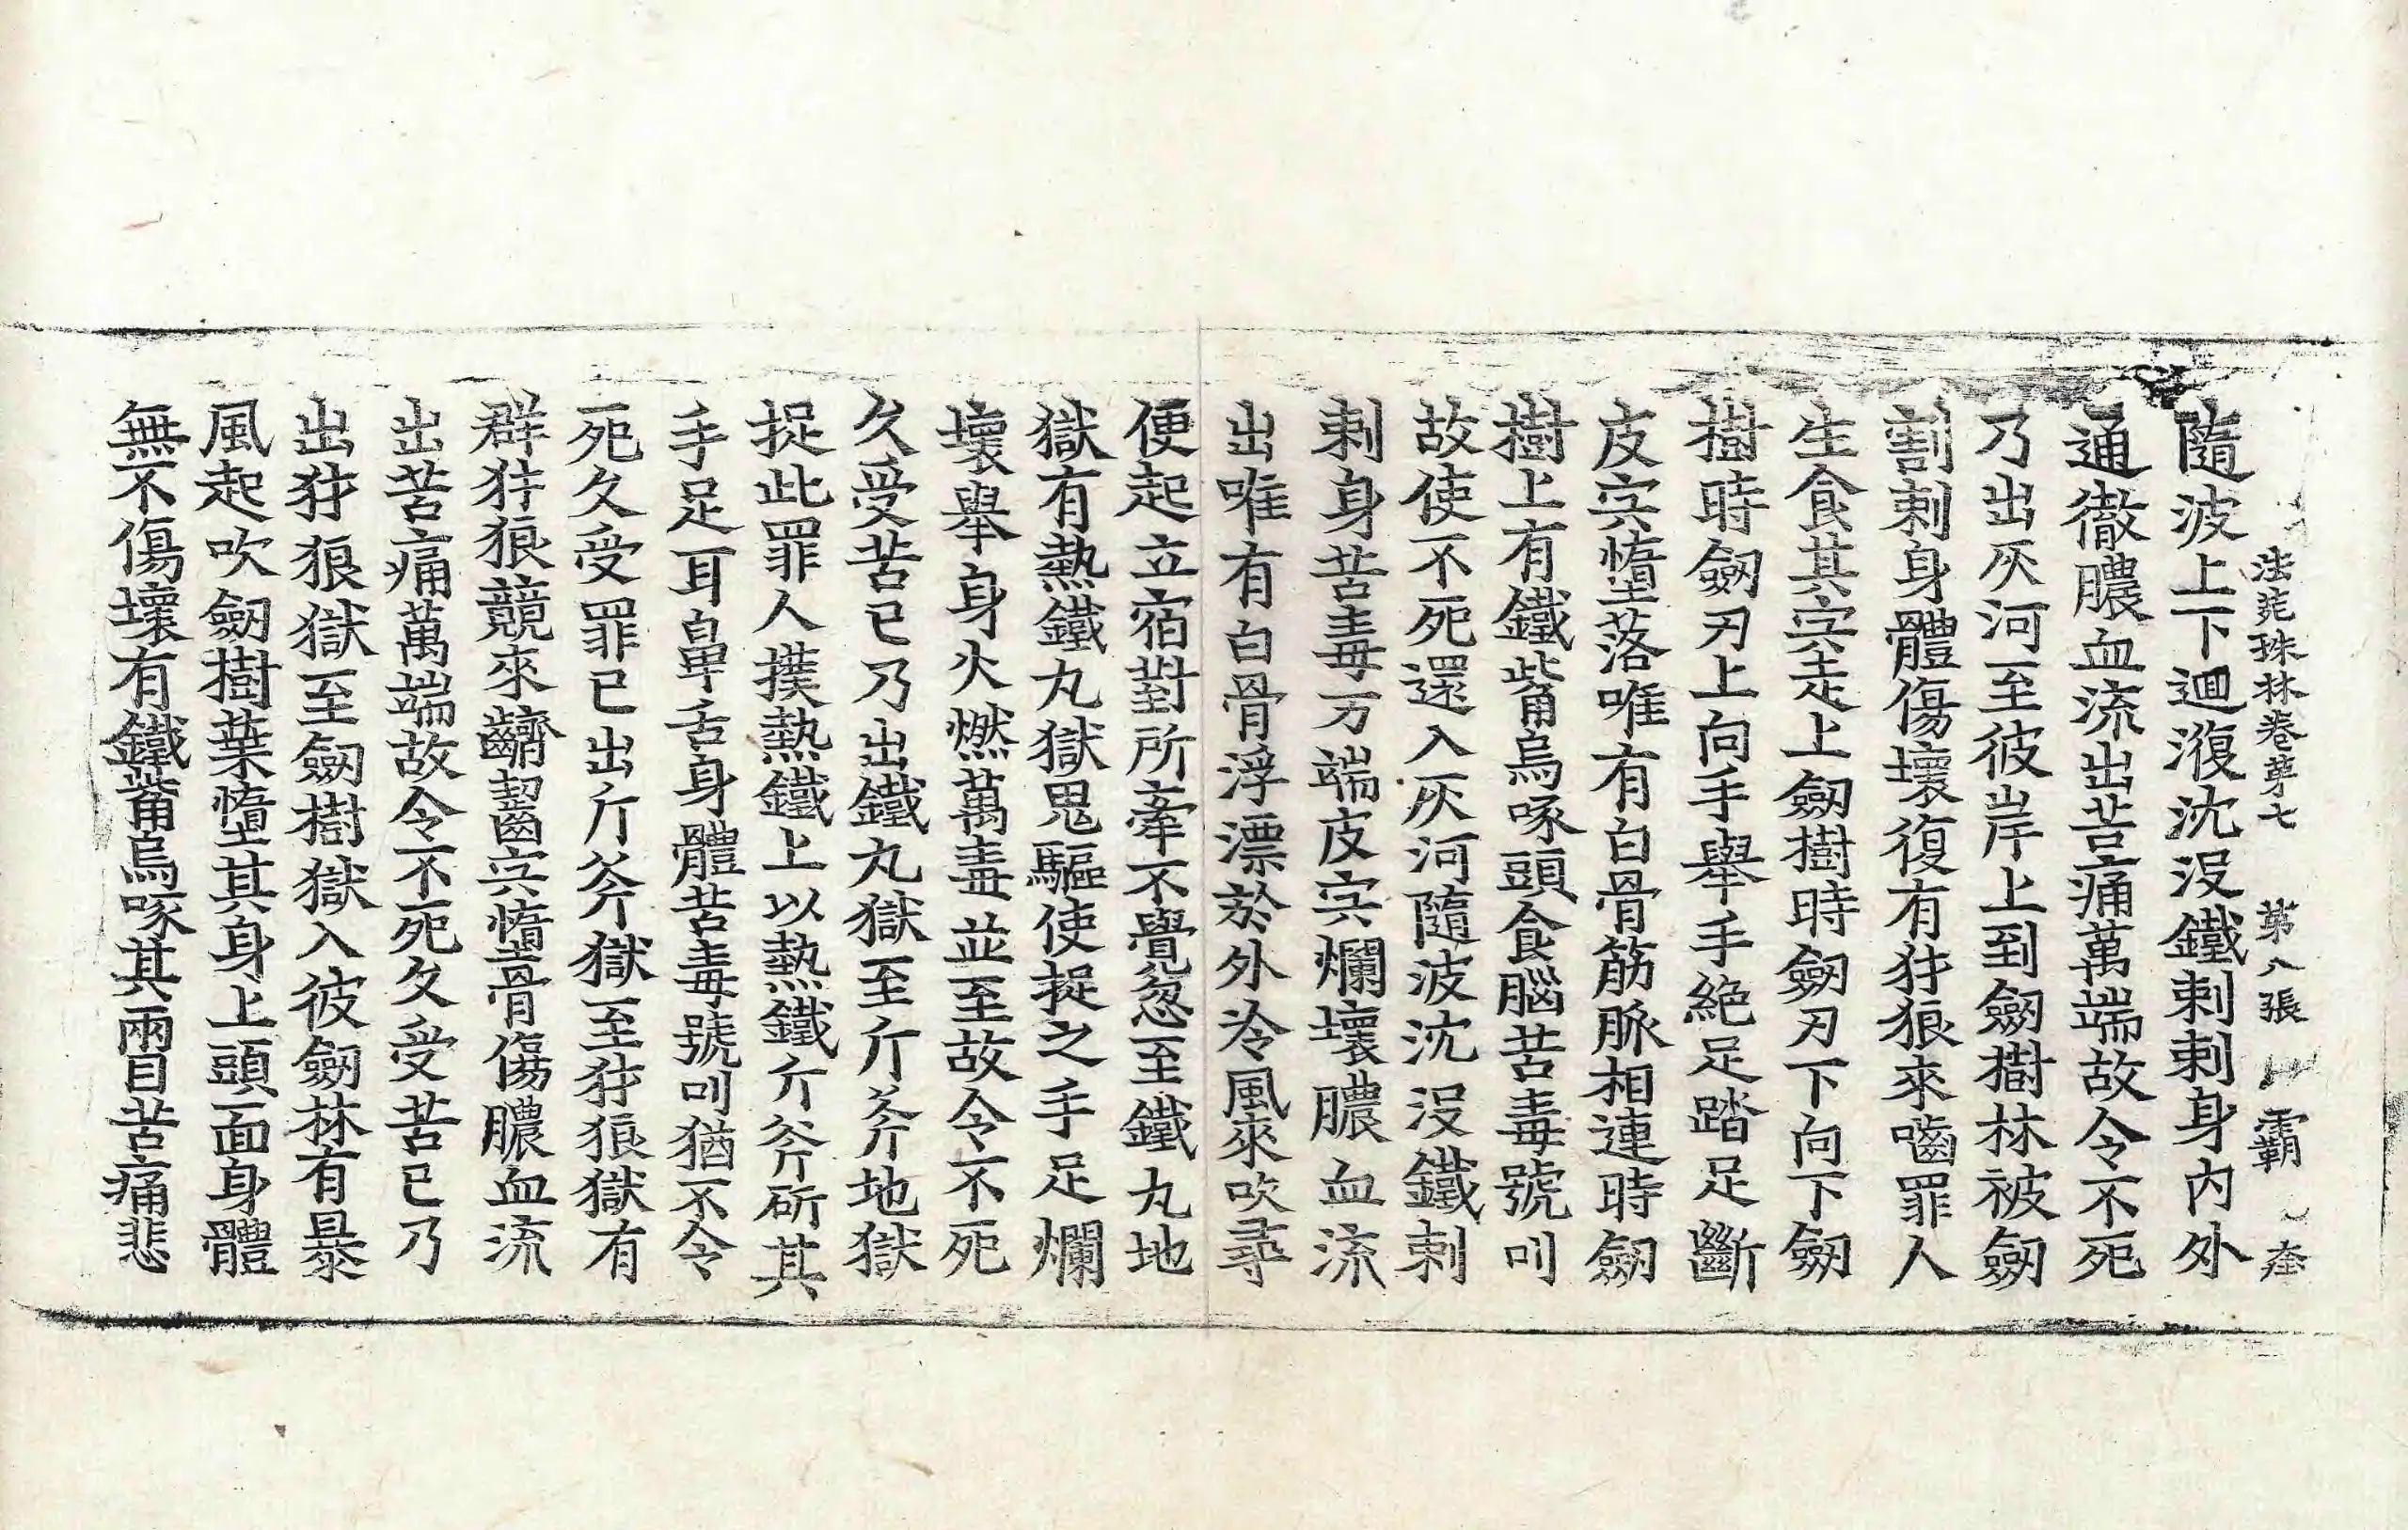 法苑珠林卷第七 第八張 霸
隨波上下迴澓沈没鐵刺刺身内外
通徹膿血流出苦痛萬端故令不死
乃出灰河至彼岸上到劒樹林被劒
割刺身體傷壞復有犲狼來嚙罪人
生食其宍走上劒樹時劒刃下向下劒
樹時劒刃上向手舉手絶足踏足斷
皮宍墮落唯有白骨筋脉相連時劒
樹上有鐵觜烏啄頭食腦苦毒號叫
故使不死還入灰河隨波沈没鐵刺
刺身苦毒万端皮宍爛壞膿血流
出唯有白骨浮漂於外冷風來吹尋
便起立宿對所牽不覺忽至鐵丸地
獄有熱鐵丸獄鬼驅使捉之手足爛
壞舉身火燃萬毒並至故令不死
久受苦已乃出鐵丸獄至斤斧地獄
捉此罪人撲熱鐵上以熱鐵斤斧斫其
手足耳鼻舌身體苦毒號叫猶不令
死久受罪已出斤斧獄至犲狼獄有
群犲狼競來齩齧宍墮骨傷膿血流
出苦痛萬端故令不死久受苦已乃
出犲狼獄至劒樹獄入彼劒林有暴
風起吹劒樹葉墮其身上頭面身體
無不傷壞有鐵觜烏啄其兩目苦痛悲